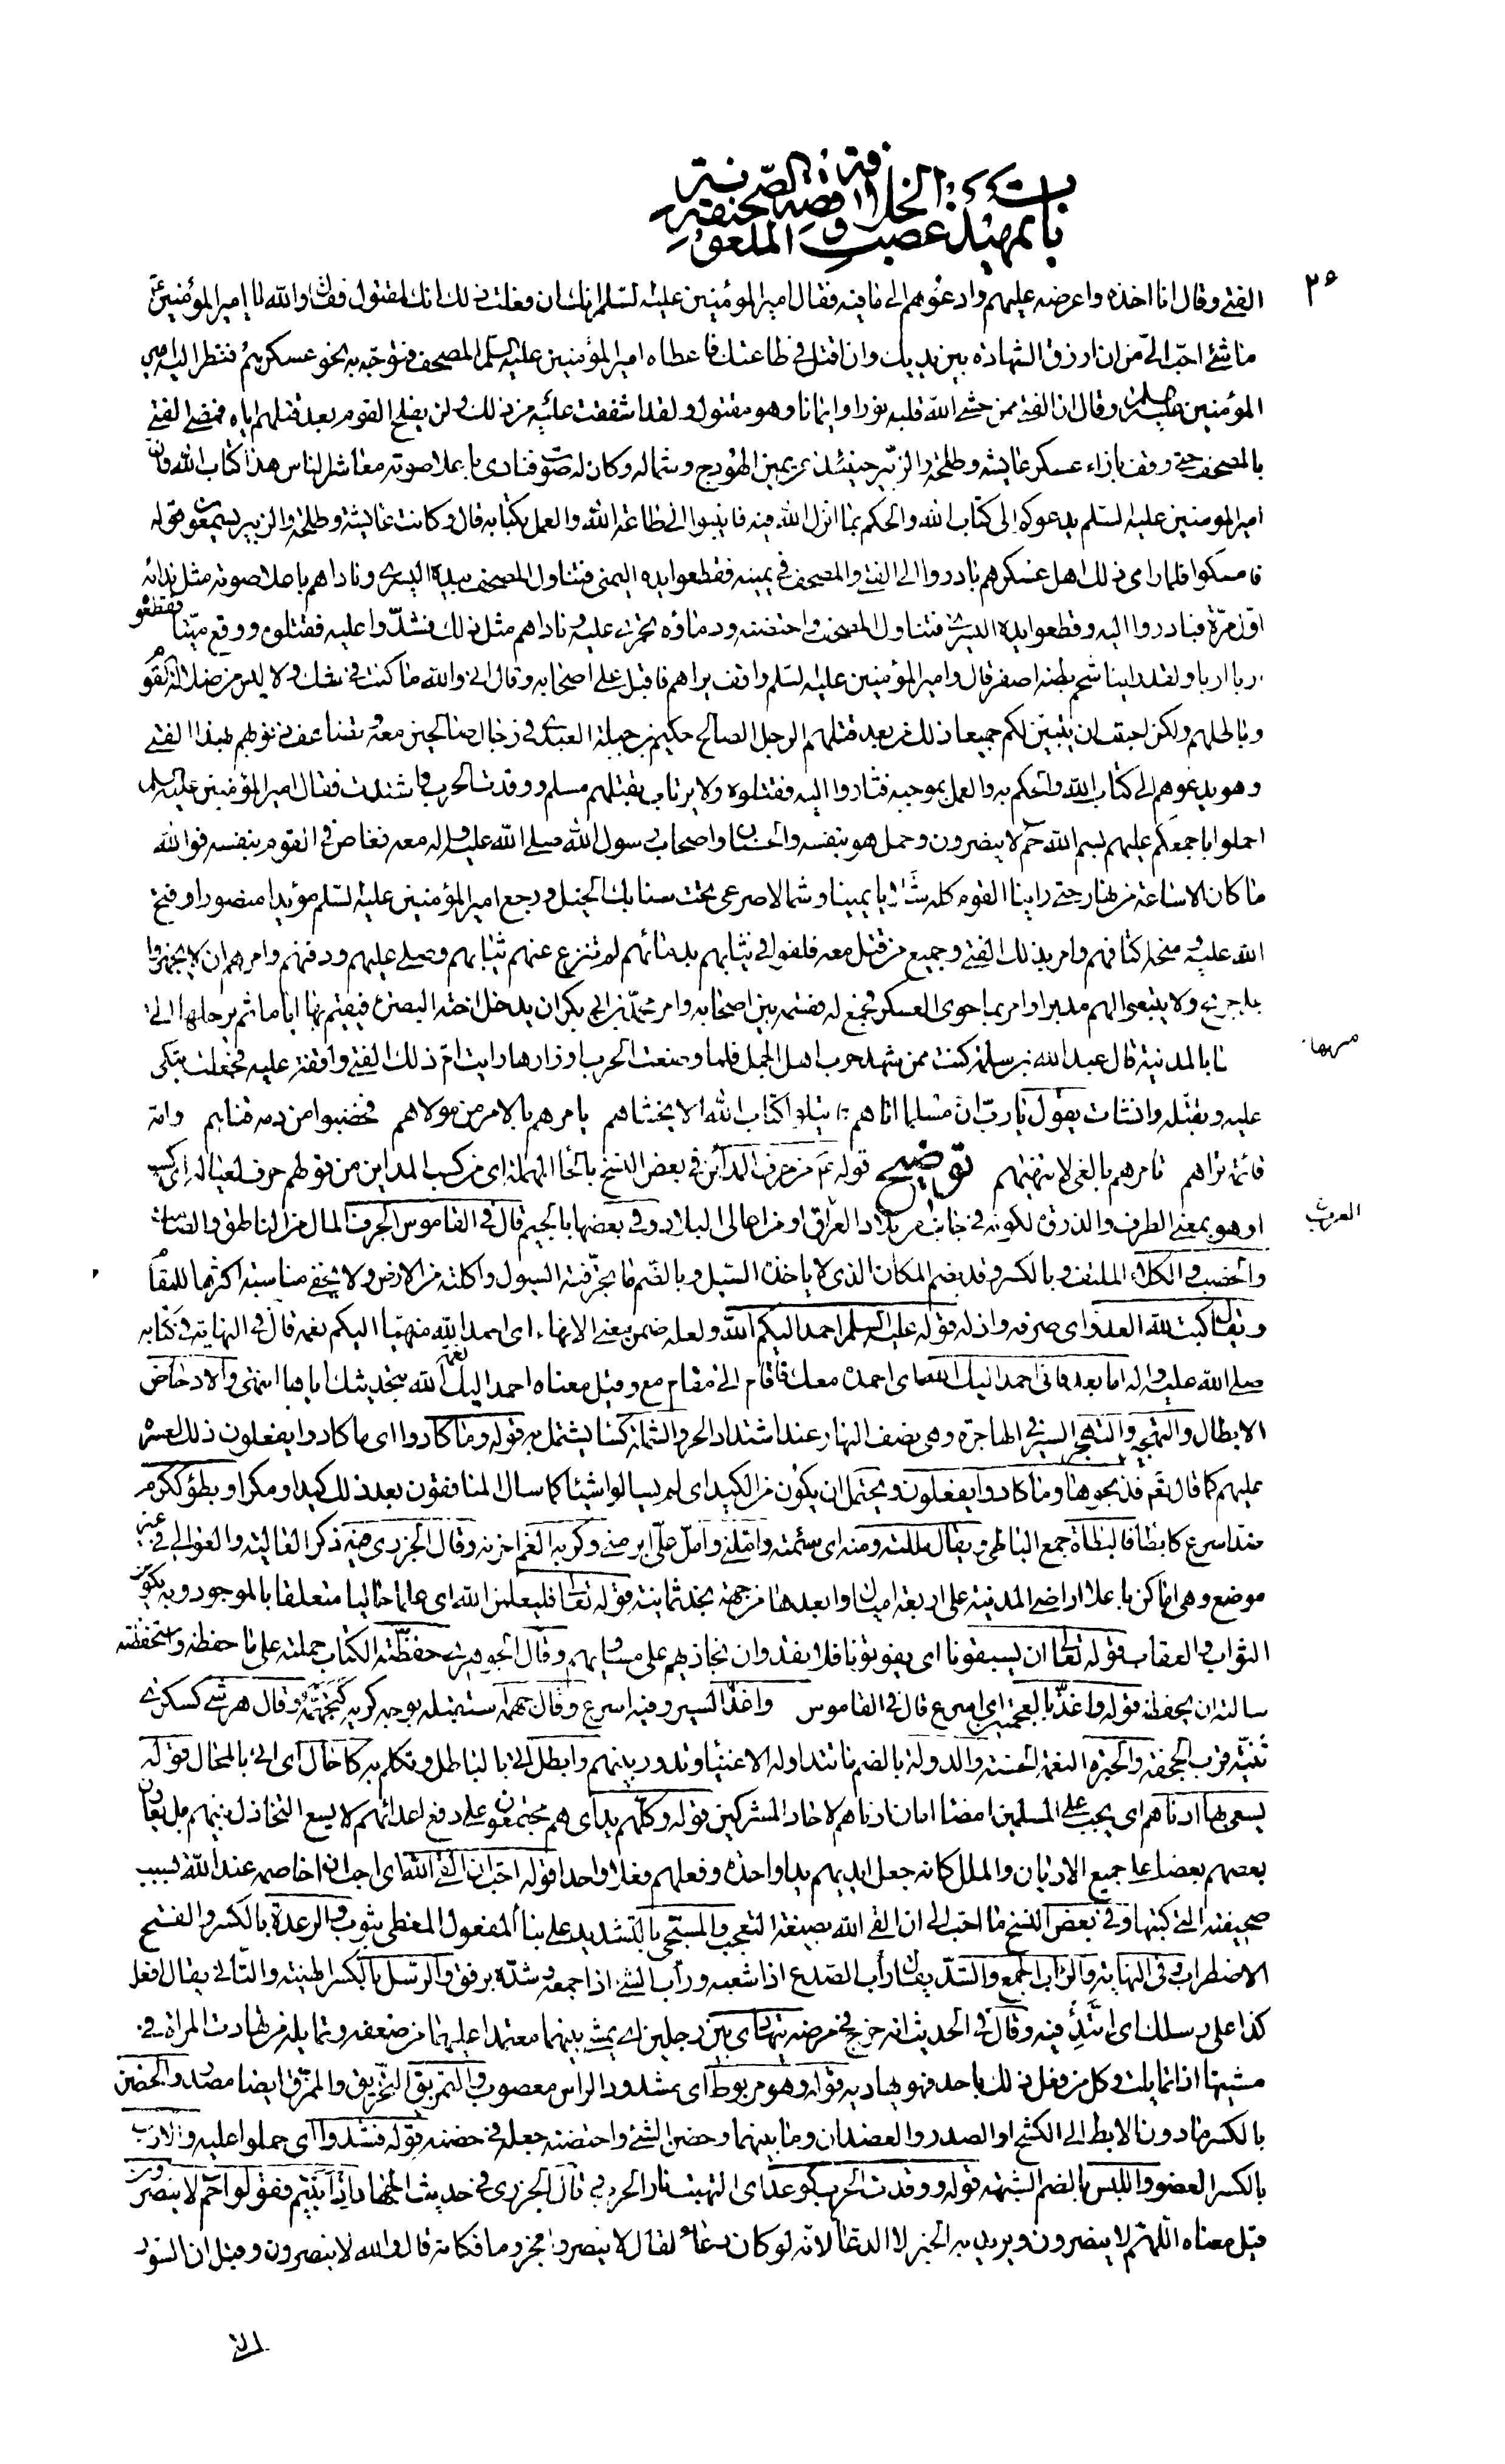 باب تمهيد غصب الخلافة وقصة الصحيفة الملعونة
٢۶
الفتى وقال انا اخذه واعرضه عليهم وادعوهم الى ما فيه فقال امير المؤمنين عليه السلم انك ان فعلت ذلك انك لمقتول فقال والله يا امير المؤمنين
ما شئ احب الى من ان ارزق الشهادة بين يديك وان اقتل فى طاعتك فاعطاه امير المؤمنين عليه السلم المصحف فتوجه به نحو عسكرهم فنظر اليه امير
المؤمنين عليه السلم وقال ان الفتى ممن حشى الله قلبه نورا وايمانا وهو مقتول ولقد اشفقت عليه من ذلك ولن يفلح القوم بعد قتلهم اياه فمضى الفتى
بالمصحف حتى وقف بازاء عسكر عايشه وطلحة والزبير حينئذ عن يمين الهودج وشماله وكان له صوت فنادى باعلا صوته معاشر الناس هذا كتاب الله وان
امير المومنين عليه السلم يدعوكم الى كتاب الله والحكم بما انزل الله فيه فانيبوا الى طاعة الله والعمل بكتابه قال وكانت عايشة وطلحة والزبير يسمعون قوله
فامسكوا فلما راى ذلك اهل عسكرهم بادروا الى الفتى والمصحف فى يمينه فقطعوا يده اليمنى فتناول المصحف بيده اليسرى وناداهم باعلا صوته مثل ندائه
اول مرة فبادروا اليه وقطعوا يده اليسرى فتناول المصحف واحتضنه ودماؤه تجرى عليه وناداهم مثل ذلك فشدوا عليه فقتلوه ووقع ميتا فقطعوه
اربا اربا ولقد راينا شحم بطنه اصفر قال وامير المؤمنين عليه السلم واقف يراهم فاقبل على اصحابه وقال انى والله ما كنت فى شك ولا لبس من ضلالة القوم
وباطلهم ولكن احببت ان يتبين لكم جميعا ذلك من بعد قتلهم الرجل الصالح حكيم بن جبلة العبدى فى رجال صالحين معه وتضاعف ذنوبهم بهذا الفتى
وهو يدعوهم الى كتاب الله والحكم به والعمل بموجبه فثاروا اليه فقتلوه ولا يرتاب بقتلهم مسلم ووقدت الحرب واشتدت فقال امير المؤمنين عليه السلم
احملوا باجمعكم عليهم بسم الله حم لا ينصرون وحمل هو بنفسه والحسنان واصحاب رسول الله صلى الله عليه واله معه فغاص فى القوم بنفسه فوالله
ما كان الا ساعة من نهار حتى راينا القوم كله شلايا يمينا وشمالا صرعى تحت سنابك الخيل ورجع امير المؤمنين عليه السلم مؤيدا منصورا وفتح
الله عليه ومنحه اكتافهم وامر بذلك الفتى وجميع من قتل معه فلفوا فى ثيابهم بدمائهم لم تنزع عنهم ثيابهم وصلى عليهم ودفنهم وامرهم ان لا يجهزوا
على جريح ولا يتبعوا لهم مدبرا وامر بما حوى العسكر فجمع له فقسمه بين اصحابه وامر محمد بن ابى بكر ان يدخل اخته البصرة فيقيم بها اياما ثم يرحلها الى
منزلها بالمدينة قال عبد الله بن سلمة كنت ممن شهد حرب اهل الجمل فلما وضعت الحرب اوزارها رايت ام ذلك الفتى واقفة عليه فجعلت تبكى
عليه وتقبله وانشات يقول يا رب ان مسلما اتاهم يتلو كتاب الله لا يخشاهم يامرهم بالامر من مولاهم فخضبوا من دمه قناهم وامه
قائمة تراهم تامرهم بالغى لا تنهيهم توضيح قوله ع من حرف المدائن فى بعض النسخ بالحاء المهملة اى من كسب المداين من قولهم حرف لعياله اى كسب
او هو بمعنى الطرف والذروة لكونه فى جانب من بلاد العراق او من اعالى البلاد وفى بعضها بالجيم قال فى القاموس الجرف المال من الناطق والصامت
والخصب والكلاء الملتف وبالكسر وقد يضم المكان الذى لا ياخذه السيل وبالضم ما تجرفته السيول واكلته من الارض ولا يخفى مناسبة اكثرها للمقام
ويقال كبت الله العدو اى صرفه واذله قوله عليه السلم احمد اليكم الله ولعله ضمن معنى الانهاء اى احمد الله منهيا اليكم نعمه قال فى النهاية فى كتابه
صلى الله عليه واله اما بعد فانى احمد اليك الله اى احمده معك فاقام الى مقام مع وقيل معناه احمد اليك نعمة الله بتحديثك اياها انتهى والادحاض
الابطال والتهجير والتهجر السير فى الهاجرة وهى نصف النهار عند اشتداد الحر والشملة كساء يشتمل به قوله وما كادوا اى ما كادوا يفعلون ذلك لعسره
عليهم كما قال تعالى فذبحوها وما كادوا يفعلون ويحتمل ان يكون من الكيد اى لم يسالوا شيئا كما سال المنافقون بعد ذلك كيدا ومكرا وبطؤ ككرم
ضد اسرع كابطا فالبطاة جمع الباطى ويقال مللته ومنه اى سئمته واملنى وامل على ابرمنى وكربه الغم احزنه وقال الجزرى فيه ذكر العالية والعوالى فى غير
موضع وهى اماكن باعلا اراضى المدينة على اربعة اميال وابعدها من جهة نجد ثمانية قوله تعالى فليعلمن الله اى علما حاليا متعلقا بالموجود وبه يكون
الثواب والعقاب قوله تعالى ان يسبقونا اى يفوتونا فلا نقدر ان نجازيهم على مساويهم وقال الجوهرى حفظته الكتاب حملته على حفظه واستحفظته
سالته ان يحفظه قوله واغذ بالمعجمتين اى اسرع قال فى القاموس واغذ السير وفيه اسرع وقال جهمه استقبله بوجه كريه كتجهمه وقال هرشى كسكرى
ثنية قرب الجحفة والحبرة النعمة الحسنة والدولة بالضم ما تتداوله الاغنياء وتدور بينهم وابطل اتى بالباطل وتكلم به كاحال اى اتى بالمحال قوله
يسعى بها ادناهم اى يجب على المسلمين امضاء امان ادناهم لاحاد المشركين قوله وكلهم يد اى هم مجتمعون على دفع اعدائهم لا يسع التخاذل بينهم بل يعاون
بعضهم بعضا على جميع الاديان والملل كانه جعل ايديهم يدا واحدة وفعلهم فعلا واحدا قوله احب ان القى الله اى احب ان اخاصمه عند الله بسبب
صحيفته التى كتبها وفى بعض النسخ ما احب الى ان القى الله بصيغة التعجب والمسجى بالتشديد على بناء المفعول المغطى بثوب والرعدة بالكسر والفتح
الاضطراب وفى النهاية والراب الجمع والشد يقال راب الصدع اذا شعبه وراب الشئ اذا جمعه وشده برفق والرسل بالكسر الهينة والتانى يقال افعل
كذا على رسلك اى اتئد فيه وقال فى الحديث انه خرج فى مرضه يتهادى بين رجلين اى يمشى بينهما معتمدا عليهما من ضعفه وتمايله من تهادت المراة فى
مشيتها اذا تمايلت وكل من فعل ذلك باحد فهو يهاديه قوله وهو مربوط اى مشدود الراس معصوب والتمزيق التخريق والممزق ايضا مصدر والحضن
بالكسر ما دون الابط الى الكشح او الصدر والعضدان وما بينهما وحضن الشئ واحتضنه جعله فى حضنه قوله فشدوا اى حملوا عليه والارب
بالكسر العضو واللبس بالضم الشبهة قوله ووقدت الحرب كوعد اى التهبت نار الحرب قال الجزرى فى حديث الجهاد اذا بيتم فقولوا حم لا ينصرون
قيل معناه اللهم لا ينصرون ويريد به الخبر لا الدعاء لانه لو كان دعاء لقال لا ينصروا مجزوما فكانه قال والله لا ينصرون وقيل ان السور
التى